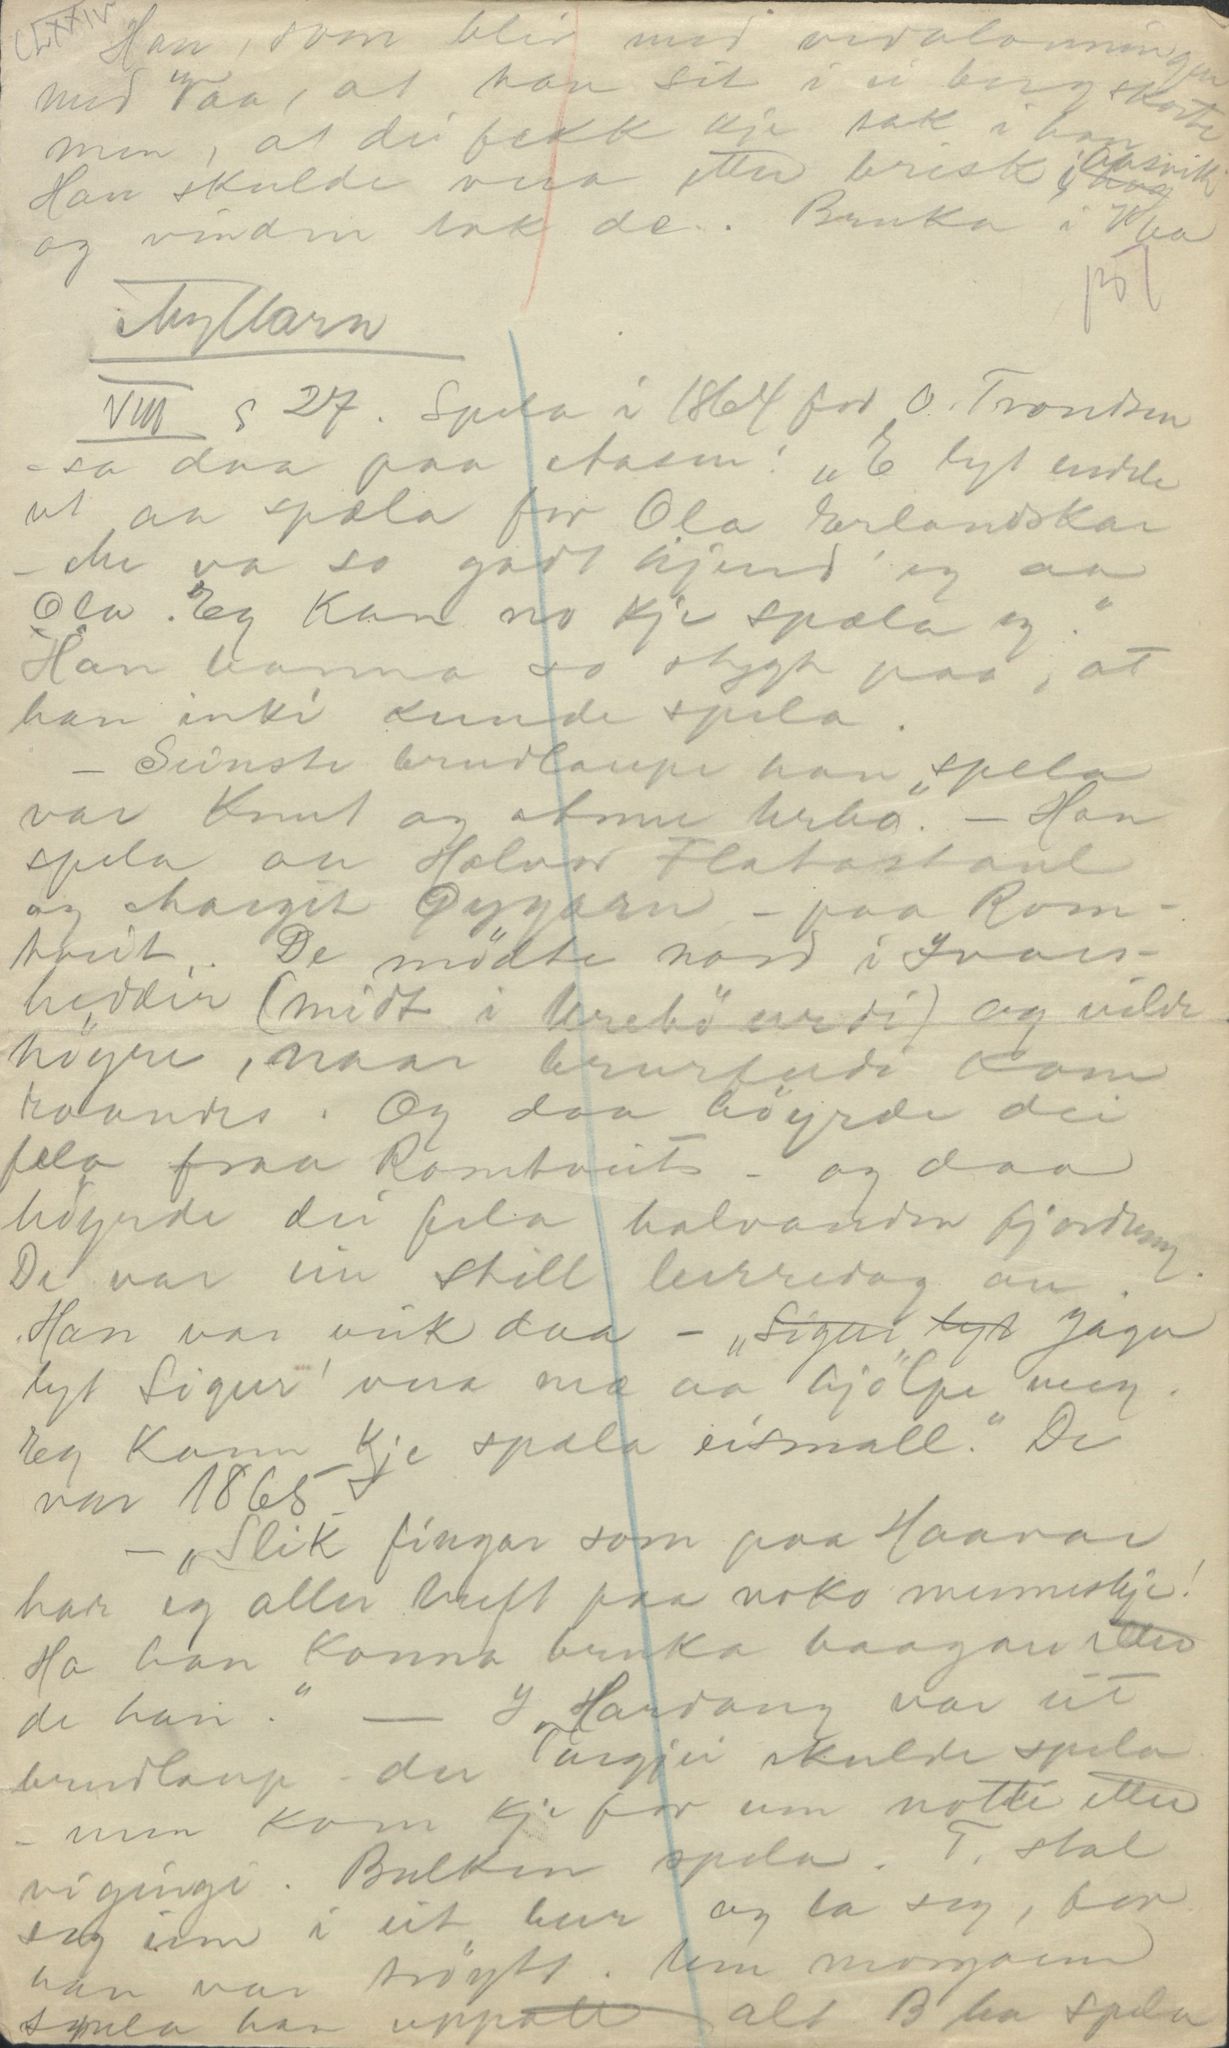 CLXXIV
Han, som blir med vedalonningen
med Vaa, at han sit i ei bergskorte
men, at dei fekk kje tak i han
Han skulde vera etter brisk i Aasvik
og vinden tok de. Bruka i Vaa
pol
Myllarn
VIII s 27. Spela i 1864 for O. Trondsen
- sa daa paa stasen: „E lyt endele
ut aa spæla for Ola Erlandskar
- Me va so godt kjend eg aa
Ola. Eg kan no kje spæla eg."
Han banna so stygt paa, at
han inki kunde spela.
- Seinste brudlaupe han „spela
var Knut og Anne Urbø". - Han
spela au Halvor Flatastaul
og Margit Øygarn - paa Rom-
tveit. De mødte nord i Ivars-
heddeir (midt i Urebø urdi) og vilde
høyre, naar brurferdi kom
roandes. Og daa høyrde dei
fela fraa Romtveit - og daa
høyrde dei fela halvandre fjordung.
De var ein still leirredag au.
Han var veik daa - „Sigur lyt Jaga
lyt Sigur' vera me aa hjølpe meg.
Eg kann kje spæla eismall." De
var 1865
- „Slik fingar som paa Haavar
har eg aller treft paa noko menneskje!
Ha han konna bruka baagaan etter
de han." — I Hardang var eit
brudlaup - der Targjei skulde spela
- men kom kje for um notti etter
vigingi. Bulken spela. T. stal
seg inn i eit bur og la seg, for
han var trøytt. Um morgoen
spela han uppatt alt B ha spela